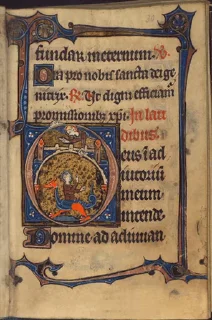 fundar in eternum. V.
Ora pro nobis sancta dei ge
nitrix. R. Ut digni efficiam
promissionibus xpi. In lau
dibus.
Deus i ad
iutoriu
meum
intende.
Domine ad adiuuan